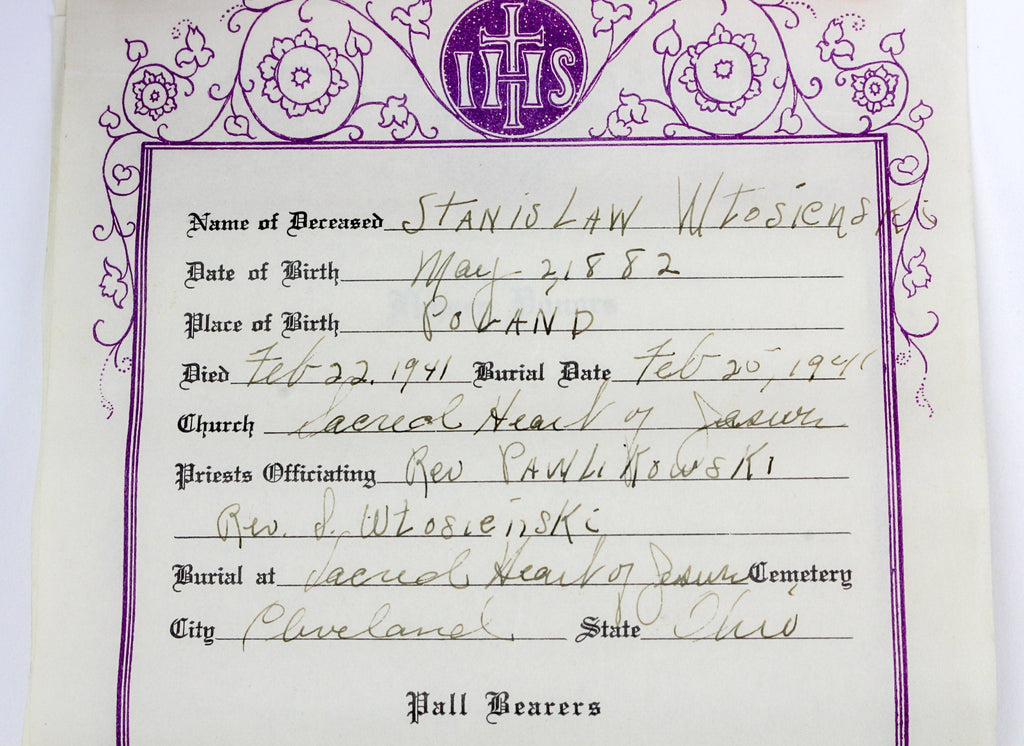 IHS
Name of Deceased Stanislaw Włosienski
Date of Birth May 2, 1882
Place of Birth Poland
Died Feb 22, 1941 Burial Date Feb 25, 1941
Church Sacred Heart of Jesus
Priests Officiating Rev Pawlikowski
Rev. S. Włosieński
Burial at Sacred Heart of Jesus Cemetery
City Cleveland State Ohio
Pall Bearers